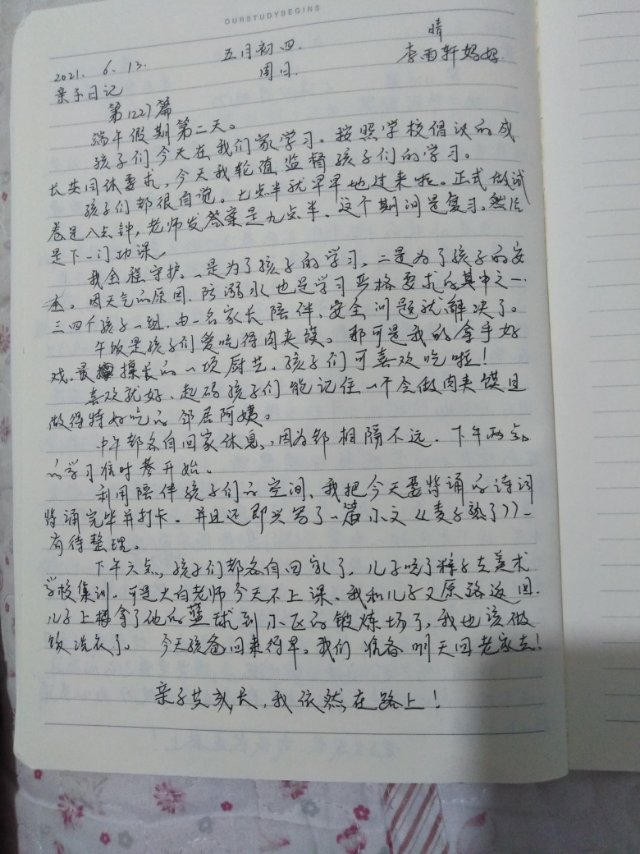 OURSTUDYBEGINS
五月初四. 晴
2021. 6. 13. 周日. 李雨轩妈妈
亲子日记
第1227篇
端午假期第二天。
孩子们今天在我们家学习。按照学校倡议的成
长共同体要求,今天我轮值监督孩子们的学习。
孩子们都很自觉。七点半就早早地过来啦。正式做试
卷是八点钟,老师发答案是九点半。这个期间是复习。然后
是下一门功课。
我全程守护。一是为了孩子的学习,二是为了孩子的安
全。因天气的原因,防溺水也是学习严格要求的其中之一。
三四个孩子一组,由一名家长陪伴,安全问题就解决了。
午饭是孩子们爱吃得肉夹馍。那可是我的拿手好
戏。最擅长的一项厨艺,孩子们可喜欢吃啦!
喜欢就好,起码孩子们能记住一个会做肉夹馍且
做得特好吃的邻居阿姨。
中午都各自回家休息,因为都相隔不远。下午两点
的学习准时开始。
利用陪伴孩子们的空间,我把今天要背诵的诗词
背诵完毕并打卡。并且还即兴写了一篇小文《麦子熟了》-
有待整理。
下午六点,孩子们都各自回家了,儿子吃了粽子去美术
学校集训。可是大白老师今天不上课。我和儿子又原路返回。
儿子上楼拿了他的篮球到小区的锻炼场了,我也该做
饭洗衣了。 今天孩爸回来得早。我们准备明天回老家去!
亲子共成长,我依然在路上!